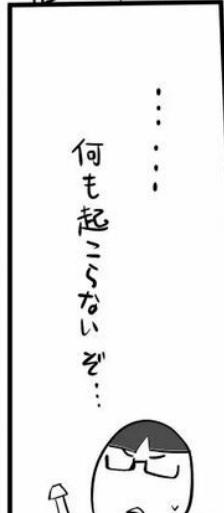 ……
何も起こらないぞ…